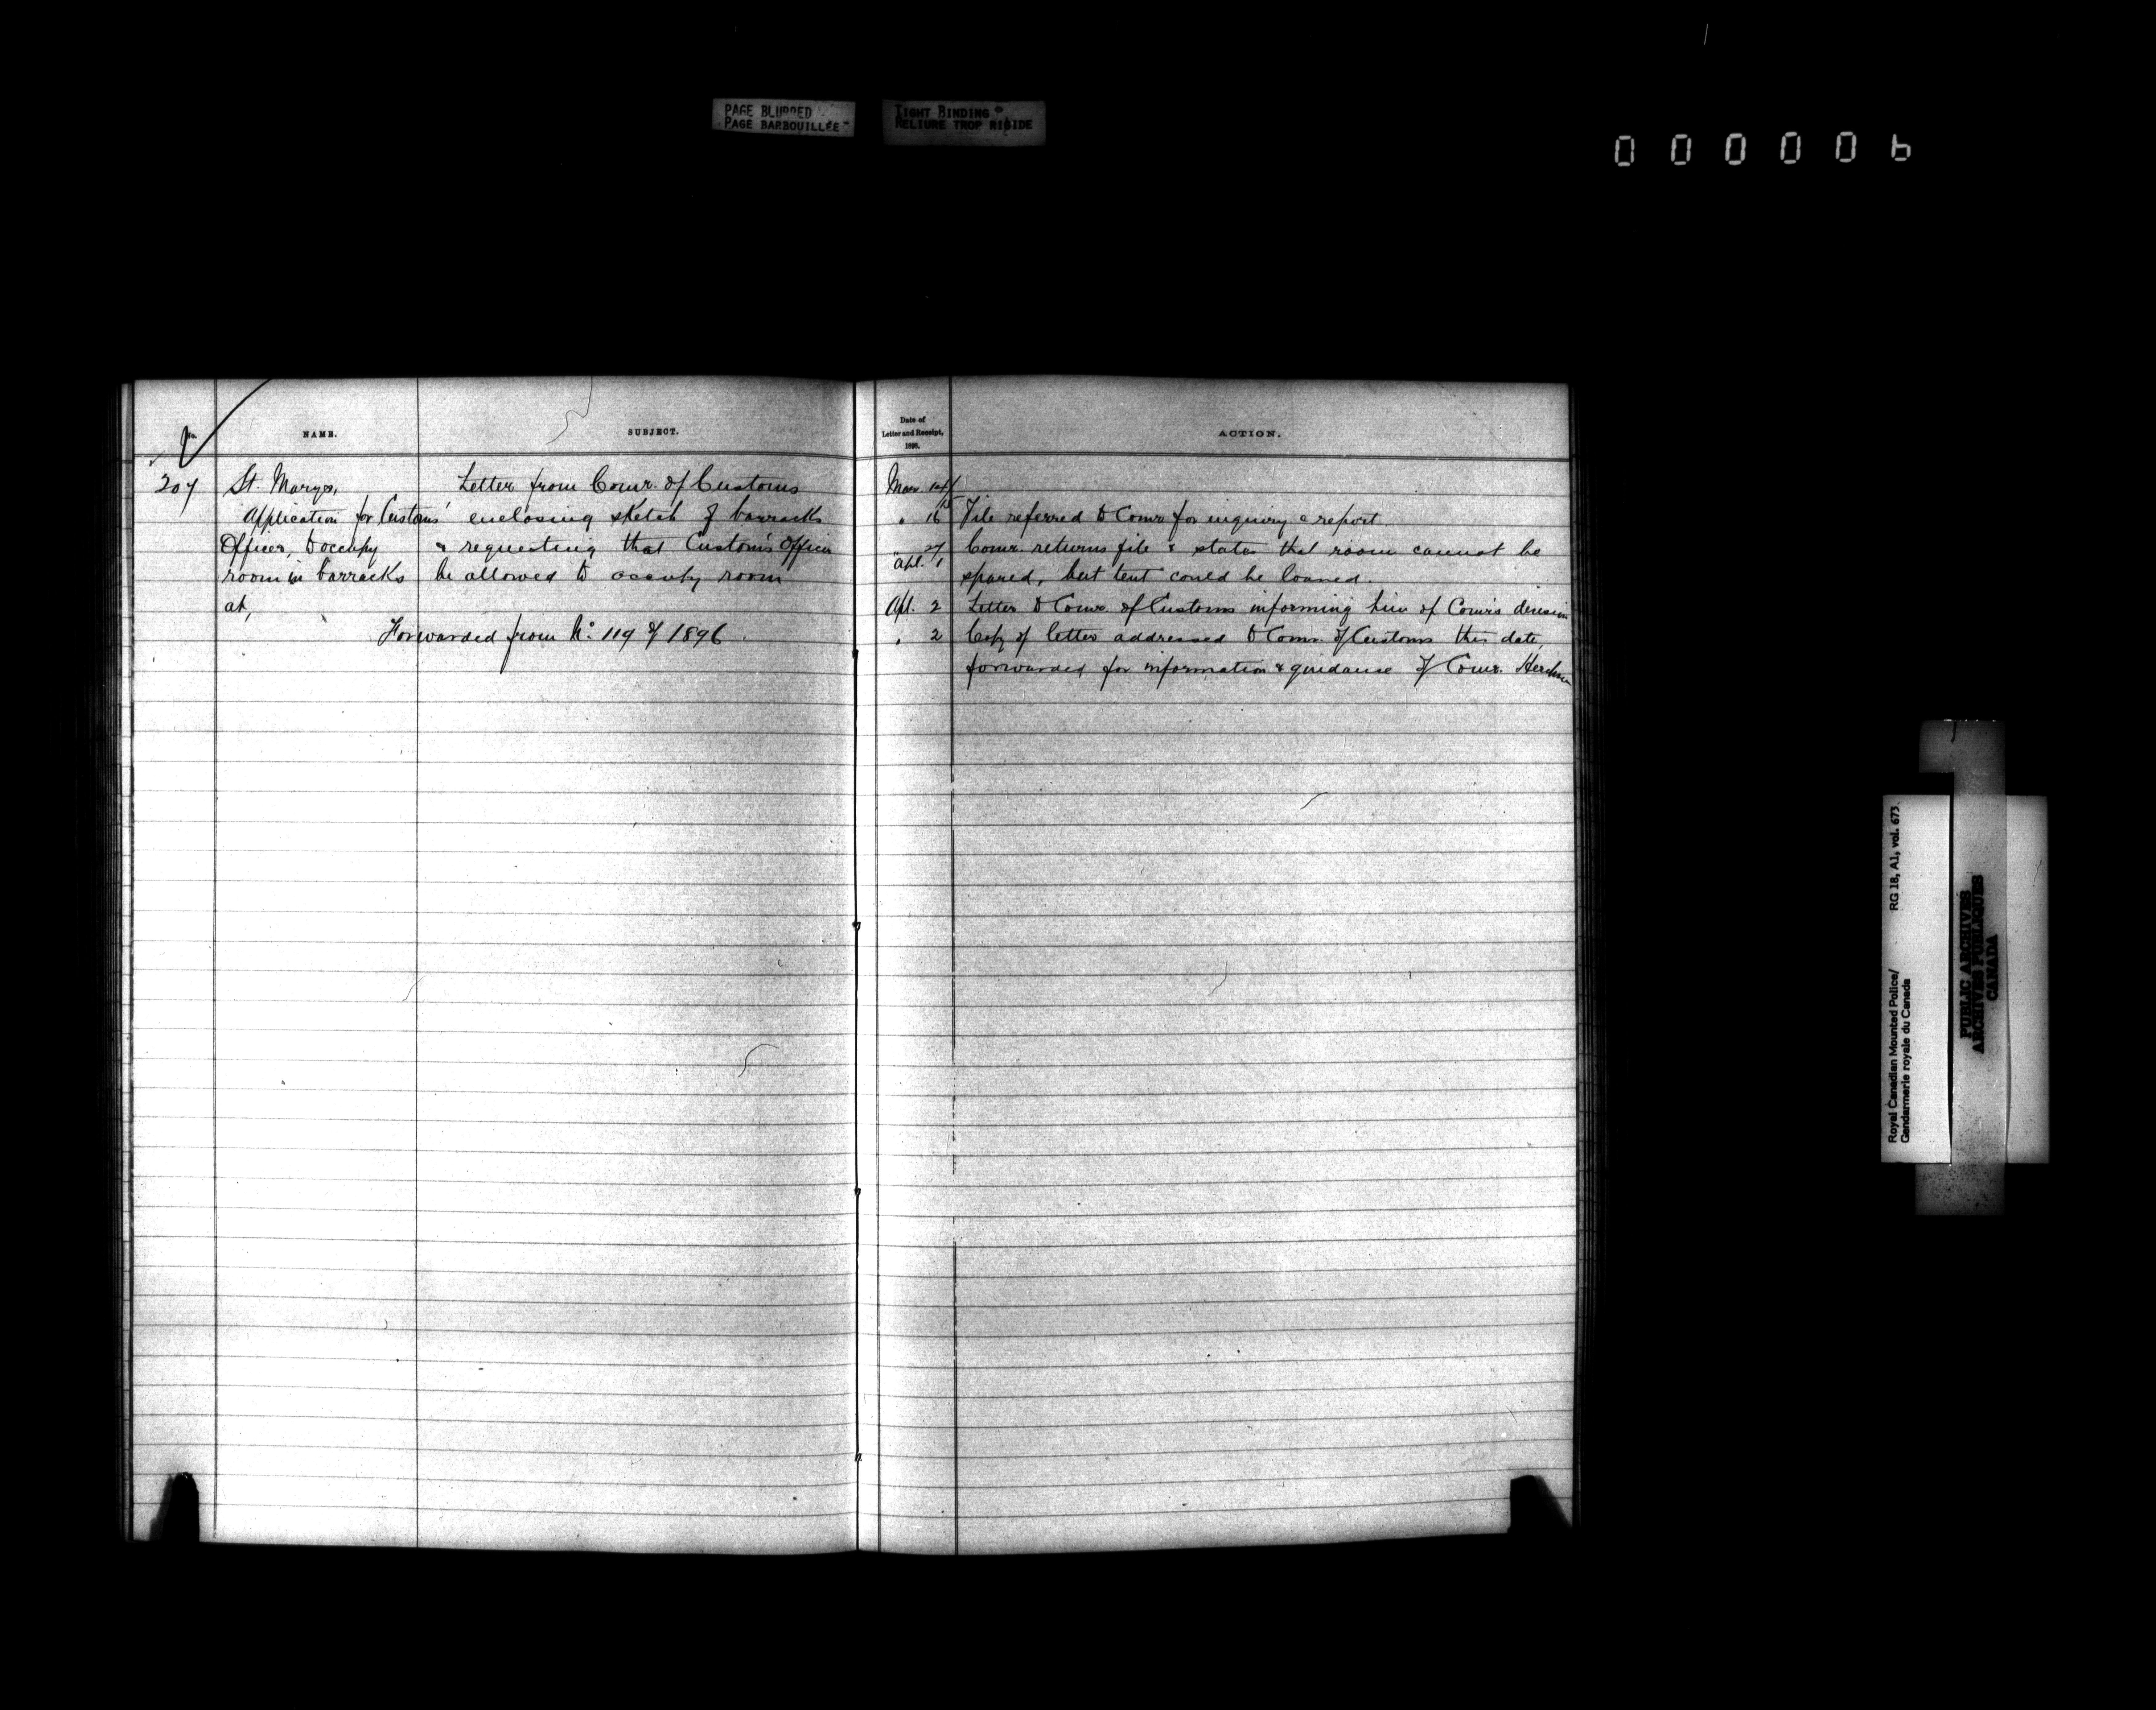 PAGE BLURRED
PAGE BARBOUILLÉE
TIGHT BINDING
RELIURE TROP RIGIDE
000006
No.
NAME.
SUBJECT.
Date of
Letter and Receipt,
ACTION.
207
St. Marys,
Application for Customs'
Officer, to occupy
room in barracks
at,
Letter from Comr. of Customs
enclosing sketch of barracks
& requesting that Customs Officer
be allowed to occupy room
Forwarded from No. 119 of 1896.
Mar. 14/
15
" 16 File referred to Comr for inquiry & report.
" 27 Comr. returns file & states that room cannot be
Apl. 1 spared, but tent could be loaned.
Apl. 2 Letter to Comr. of Customs informing him of Comr's decision
" 2 Copy of letter addressed to Comr. of Customs this date,
forwarded for information & guidance of Comr.
Royal Canadian Mounted Police/
Gendarmerie royale du Canada
RG 18, A1, vol. 673.
PUBLIC ARCHIVES
ARCHIVES PUBLIQUES
CANADA